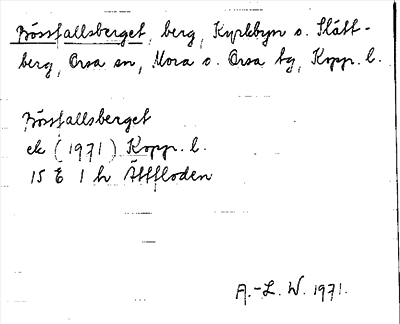 Börsfallsberget, berg, Kyrkbyn o. Slätt-
berg, Orsa sn, Mora o. Orsa tg, Kopp. l.
Börsfallsberget
ek (1971) Kopp. l.
15 E 1 h Älvfloden
A.-L. W. 1971.